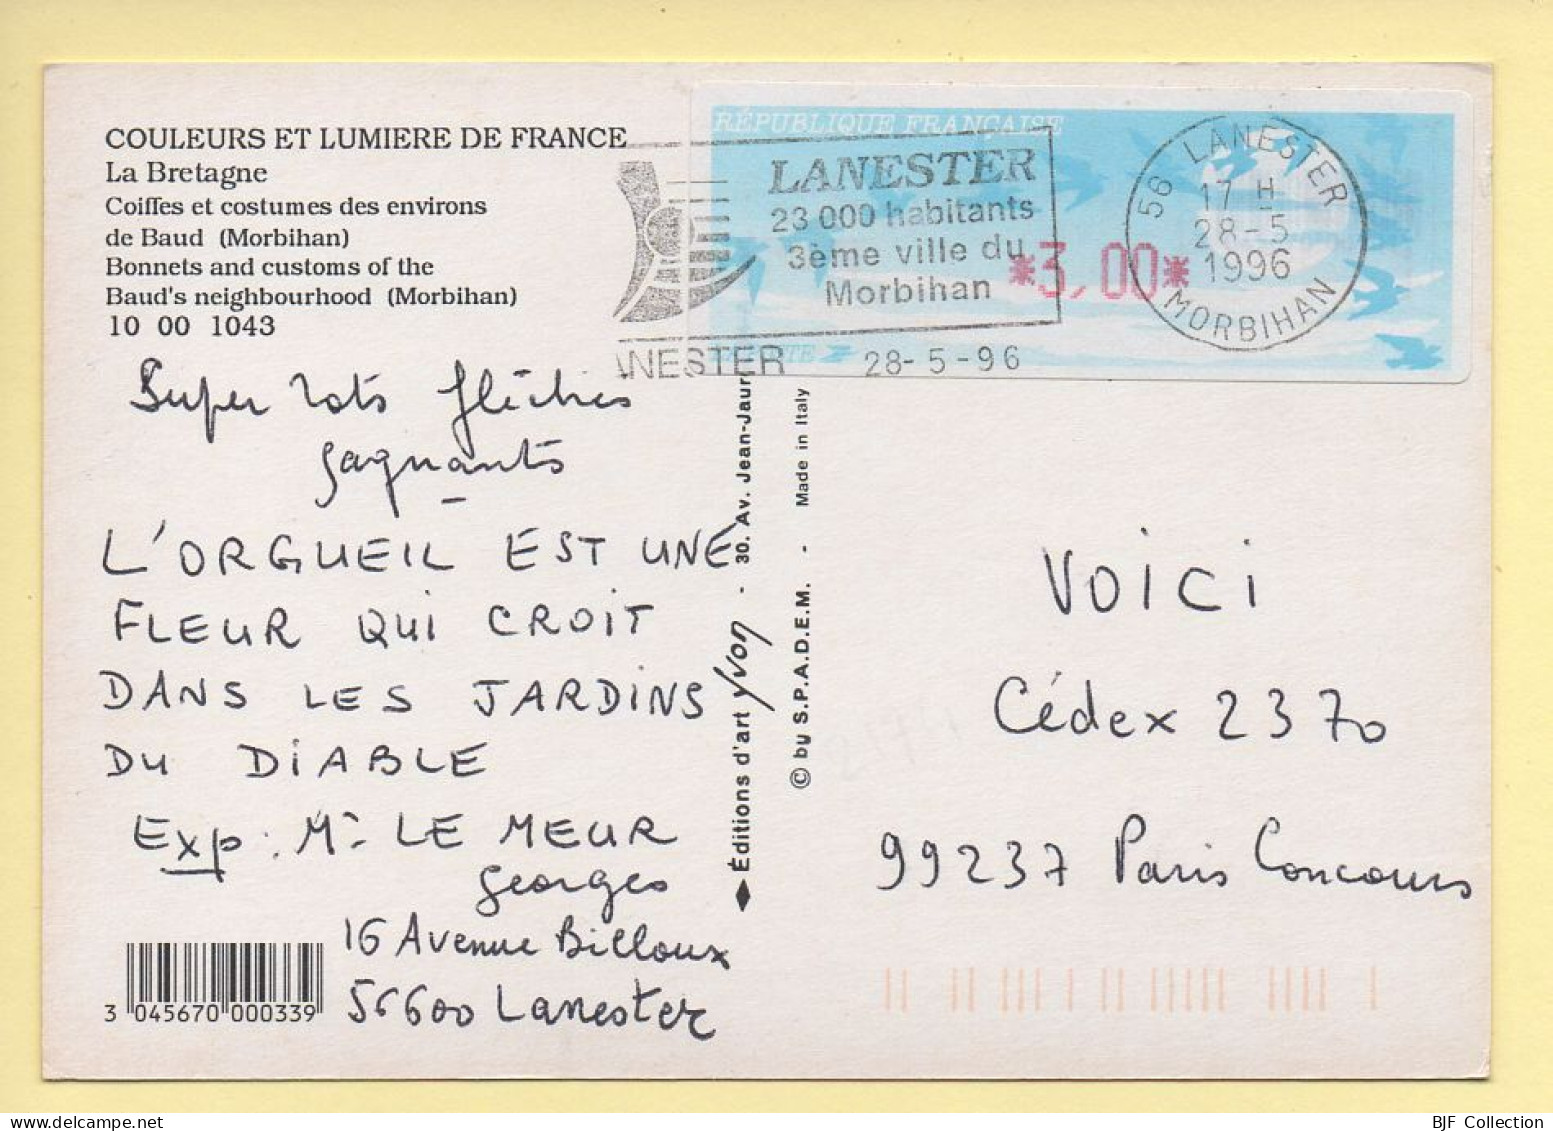 COULEURS ET LUMIERE DE FRANCE
La Bretagne
Coiffes et costumes des environs
de Baud (Morbihan)
Bonnets and customs of the
Baud's neighbourhood (Morbihan)
10 00 1043
RÉPUBLIQUE FRANÇAISE
LANESTER
23 000 habitants
3ème ville du
Morbihan
LANESTER 28-5-96
*3,00*
56 LANESTER
17 H
28-5
1996
MORBIHAN
Super lots fléchés
gagnants
L'ORGUEIL EST UNE
FLEUR QUI CROIT
DANS LES JARDINS
DU DIABLE
Exp : Mr LE MEUR
Georges
16 Avenue Billoux
56600 Lanester
3 045670 000339
Éditions d'art Yvon - 30. Av. Jean-Jaur
© by S.P.A.D.E.M. - Made in Italy
VOICI
Cédex 2370
99237 Paris Concours
BJF Collection